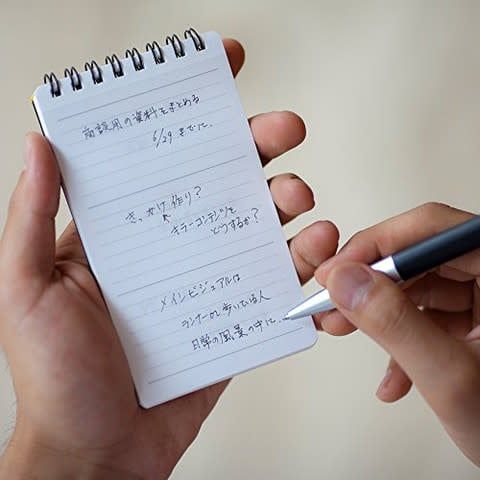 商談用の資料をまとめる
6/29 までに、
きっかけ作り？
キラーコンテンツを
どうするか？
メインビジュアルは
ランナーor歩いている人
日常の風景の中に、